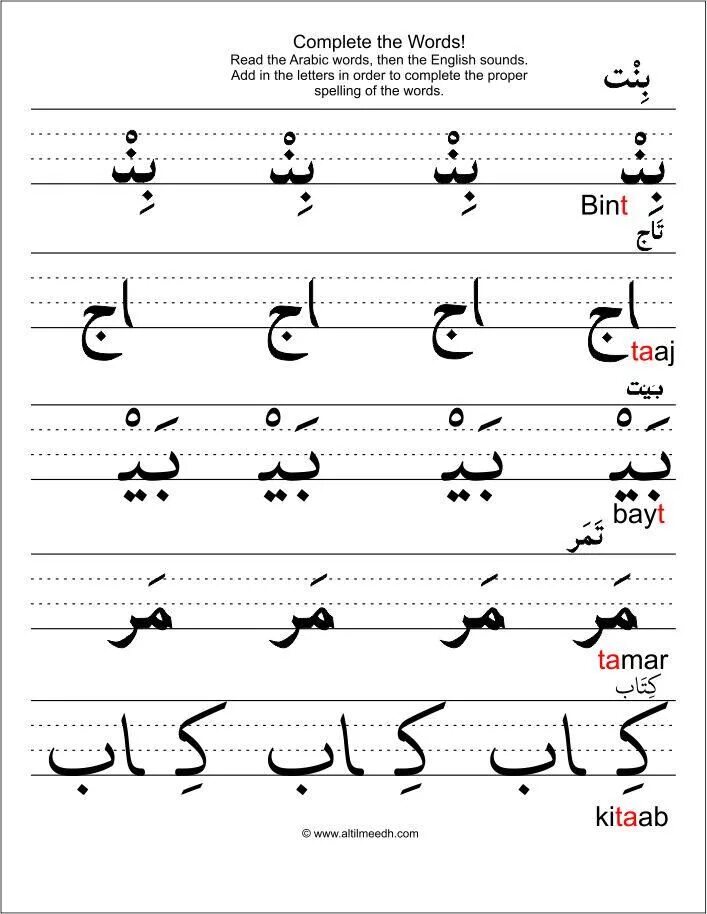 Complete the Words!
Read the Arabic words, then the English sounds.
Add in the letters in order to complete the proper
spelling of the words.
بِنْت
بِنْ بِنْ بِنْ بِنْ
Bint
تَاج
اج اج اج اج
taaj
بَيْت
بَيْ بَيْ بَيْ بَيْ
bayt
تَمَر
مَر مَر مَر مَر
tamar
كِتَاب
كِ اب كِ اب كِ اب
kitaab
© www.altilmeedh.com